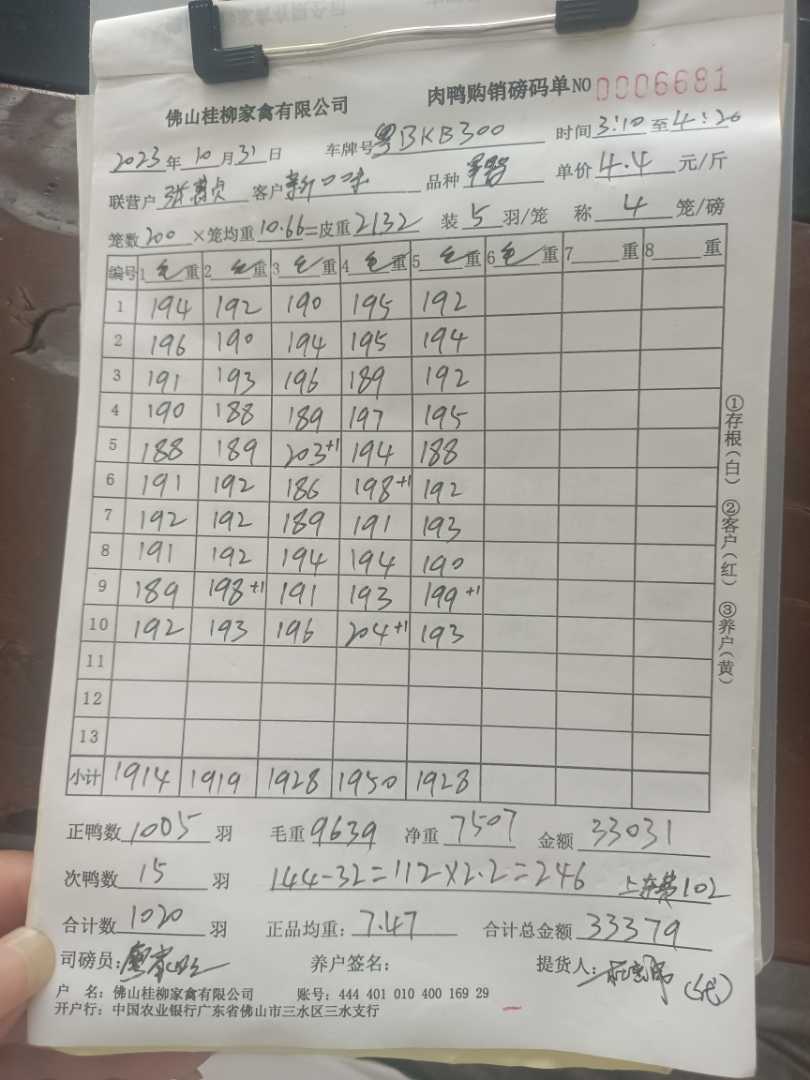 佛山桂柳家禽有限公司 肉鸭购销磅码单 NO 0006681
2023年10月31日 车牌号粤BKB300 时间3:10至4:20
联营户 客户新口味 品种 单价4.4元/斤
笼数200×笼均重10.66=皮重2132 装5羽/笼 称4笼/磅
编号 1毛重 2毛重 3毛重 4毛重 5毛重 6毛重 7重 8重
1 194 192 190 195 192
2 196 190 194 195 194
3 191 193 196 189 192
4 190 188 189 197 195
5 188 189 203+1 194 188
6 191 192 186 198+1 192
7 192 192 189 191 193
8 191 192 194 194 190
9 189 198+1 191 193 199+1
10 192 193 196 204+1 193
11
12
13
小计 1914 1919 1928 1950 1928
①存根(白) ②客户(红) ③养户(黄)
正鸭数1005羽 毛重9639 净重7507 金额33031
次鸭数15羽 144-32=112×2.2=246 上车费102
合计数1020羽 正品均重:7.47 合计总金额33379
司磅员: 养户签名: 提货人: (代)
户 名:佛山桂柳家禽有限公司 账号:444 401 010 400 169 29
开户行:中国农业银行广东省佛山市三水区三水支行